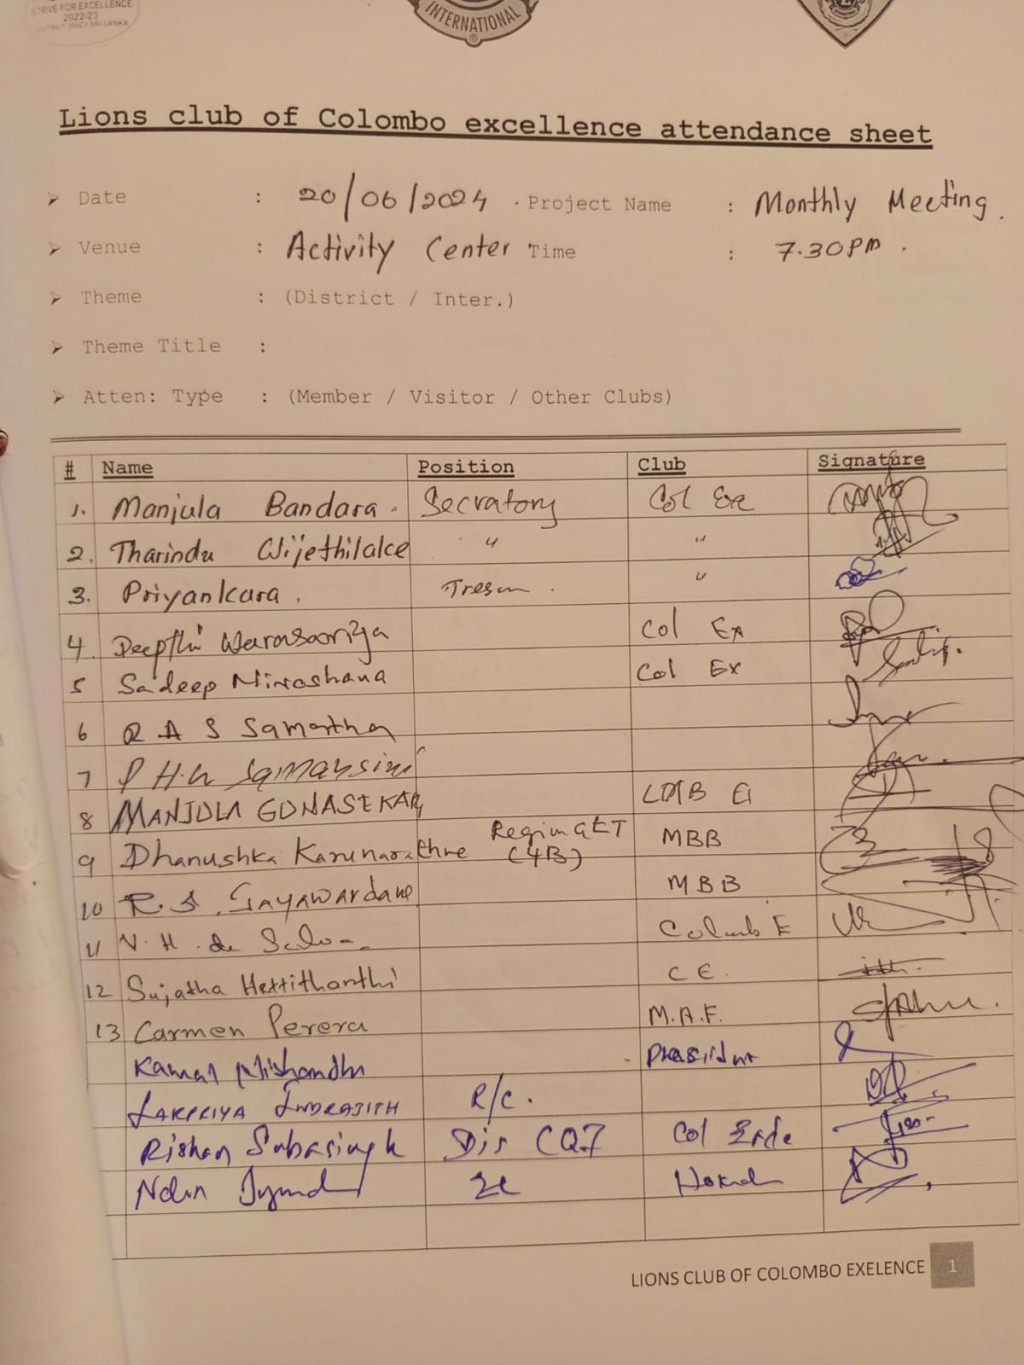 STRIVE FOR EXCELLENCE
2022/23
INTERNATIONAL
Lions club of Colombo excellence attendance sheet
➢ Date : 20/06/2024 Project Name : Monthly Meeting.
➢ Venue : Activity Center Time : 7.30PM.
➢ Theme : (District / Inter.)
➢ Theme Title :
➢ Atten: Type : (Member / Visitor / Other Clubs)
# Name Position Club Signature
1. Manjula Bandara. Secratory Col Exe
2. Tharindu Wijethilake " "
3. Priyankara. "
4. Deepthi Warasooriya Col Ex
5 Sadeep Niroshana Col Ex
6 R A S Samantha
7 P H.
8 MANJULA GUNASEKAR
9 Dhanushka Karunarathne (4B) MBB
10 R. S. Jayawardane MBB
11 N. H. de Silva E
12 Sujatha Hettithanthi C E.
13 Carmen Perera M.A.F.
Kamal Nishandhi President
LAKPRIYA INDRAJITH R/C.
Rishan Subasingh Dis Col
LIONS CLUB OF COLOMBO EXELENCE 1